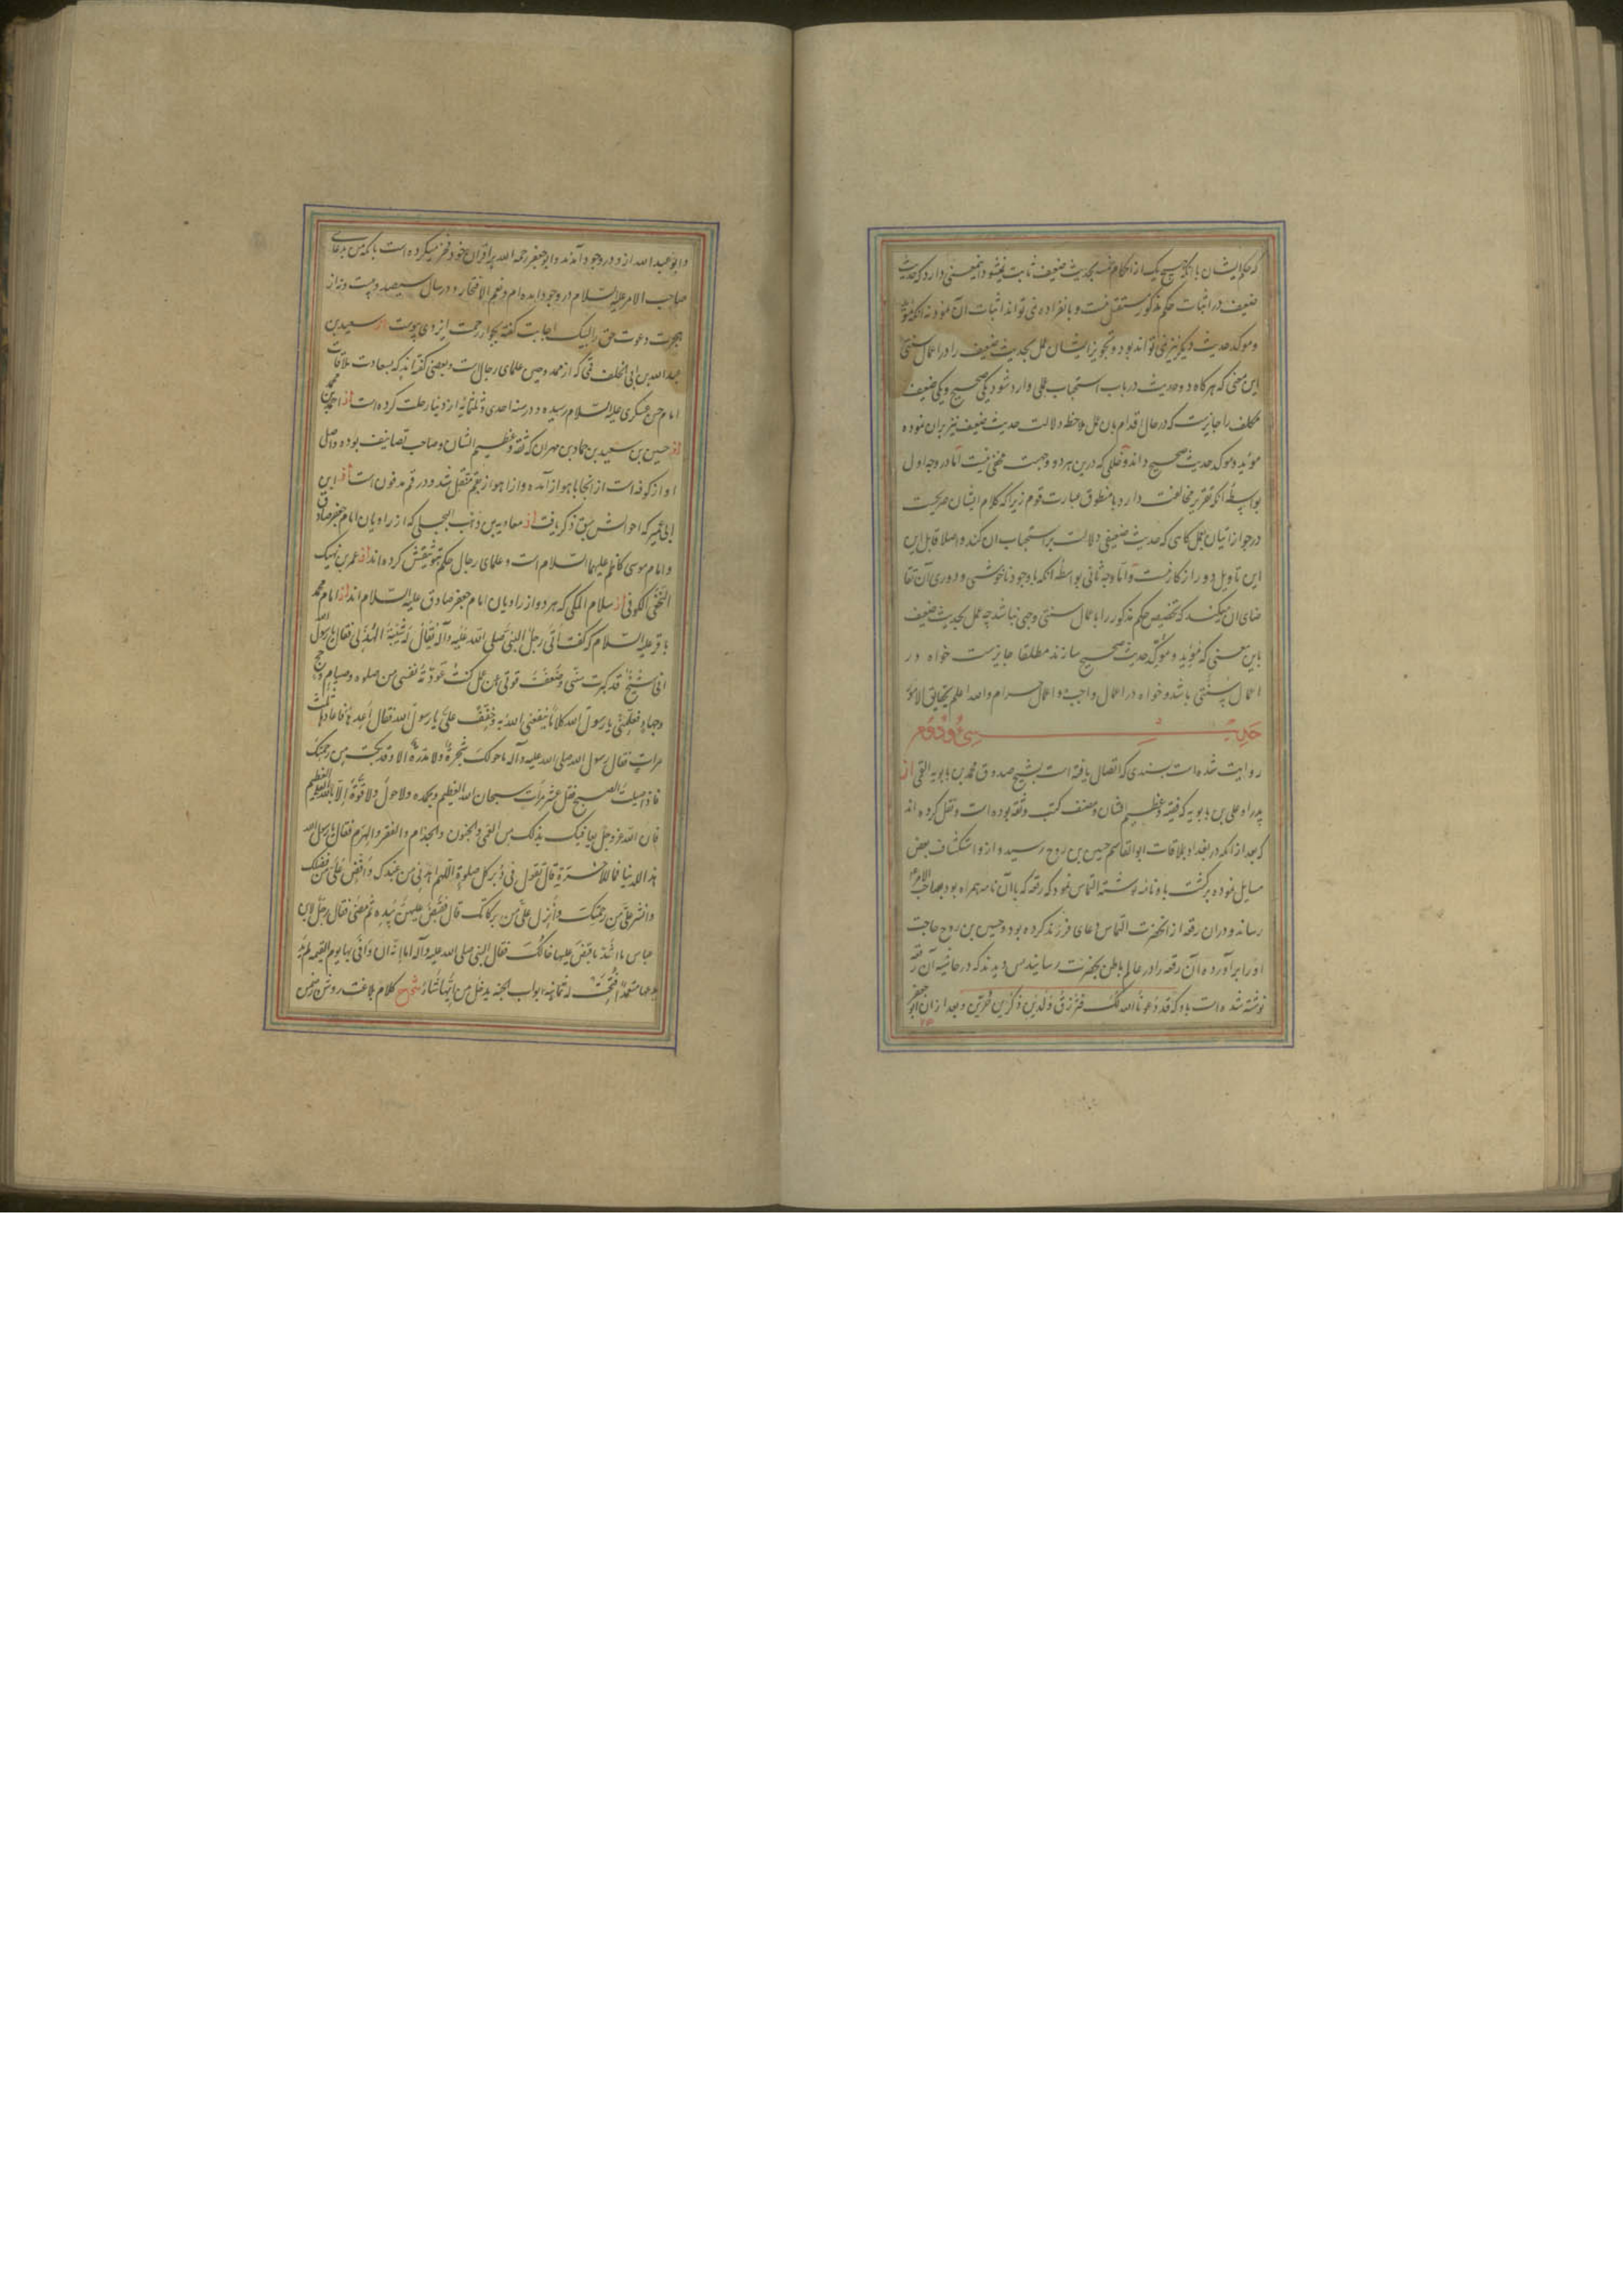 که حکم ایشان باانکه هیچ یک از احکام خمسه بحدیث ضعیف ثابت نمیشود اینمعنی دارد که حدیث
ضعیف در اثبات حکم مذکور مستقل نیست و بانفراده نمی تواند اثبات آن نمود نه آنکه مؤید
و موکد حدیث دیگر نیز نمی تواند بود و تجویز ایشان عمل بحدیث ضعیف را در اعمال سنتی
این معنی که هرکاه دو حدیث در باب استحباب عملی وارد شود یکی صحیح و یکی ضعیف
مکلف را جایزست که در حال اقدام بان عمل ملاحظه دلالت حدیث ضعیف نیز بران نموده
مؤید و موکد حدیث صحیح داند و خللی که درین هر دو وجهت مخفی نیست اما در وجه اول
بواسطه آنکه تقریر مخالفت دارد با منطوق عبارت قوم زیرا که کلام ایشان صریحست
در جواز اتیان بعمل کاهی که حدیث ضعیفی دلالت بر استحباب ان کند و اصلا قابل این
این تاویل دور از کار نیست و اما وجه ثانی بواسطه آنکه با وجود ناخوشی و دوری آن تقا
ضای ان میکند که تخصیص حکم مذکور را با عمال سنتی وجهی نباشد چه عمل بحدیث ضعیف
باین معنی که مؤید و موکد حدیث صحیح سازند مطلقا جایزست خواه در
اعمال سنتی باشد و خواه در اعمال واجب و اعمال حرام والله اعلم بحقایق الامور
حدیث سی و دوم
روایت شده است بسندی که اتصال یافته است بشیخ صدوق محمد بن بابویه القمی از
پدر او علی بن بابویه که فقیه و عظیم الشان و مصنف کتب و ثقه بوده است و نقل کرده اند
که بعد از آنکه در بغداد بملاقات ابوالقاسم حسین بن روح رسید و از و استکشاف بعض
مسایل نموده برکشت باو نامه نوشته التماس نمود که رقعه که باآن نامه همراه بود بصاحب الامر
رساند و دران رقعه از انحضرت التماس دعای فرزند کرده بود و حسین بن روح حاجت
او را برآورده آن رقعه را در عالم باطن بحضرت رسانید پس دیدند که در حاشیه آن رقعه
نوشته شده است باو که قد دعونا الله لک فترزق ولدین ذکرین خیرین و بعد از ان ابو جعفر
و ابو عبدالله از و در وجود آمدند و ابو جعفر رحمه الله بر اقران خود فخر میکرده است بانکه من بدعای
صاحب الامر علیه السلام در وجود آمده ام و نعم الافتخار و در سال سیصد و بیست و نه از
هجرت دعوت حق را لبیک اجابت کفته بجوار رحمت ایزدی پیوست از سعد بن
عبدالله بن ابی الخلف قمی که از عمده و علمای رجال است و بعضی کفته اند که بسعادت ملاقات
امام حسن عسکری علیه السلام رسیده و در سنه احدی و ثلثمائه از دنیا رحلت کرده است از احمد بن محمد
از حسین بن سعید بن حماد بن مهران که ثقه و عظیم الشان و صاحب تصانیف بوده و اصل
او از کوفه است از انجا باهواز آمده و از اهواز بقم منتقل شد و در قم مدفون است از ابن
ابی عمیر که احوالش سبق ذکر یافت از معاویه بن وهب البجلی که از راویان امام جعفر صادق
و امام موسی کاظم علیهما السلام است و علمای رجال حکم بتوثیقش کرده اند از عمر بن نهیک
النخعی الکوفی از سلام المکی که هر دو از راویان امام جعفر صادق علیه السلام اند از امام محمد
باقر علیه السلام که کفت اتی رجل النبی صلی الله علیه وآله یقال له شیبة الهذلی فقال یا رسول الله
انی شیخ قد کبرت سنی و ضعفت قوتی عن عمل کنت عودته نفسی من صلوة و صیام و حج
و جهاد فعلمنی یا رسول الله کلاما ینفعنی الله به و خفف علی یا رسول الله فقال اعدها فاعادها ثلث
مرات فقال رسول الله صلی الله علیه وآله ما حولک شجرة ولا مدرة الا وقد بکت من رحمتک
فاذا صلیت الصبح فقل عشر مرات سبحان الله العظیم وبحمده ولا حول ولا قوة الا بالله العلی العظیم
فان الله عز وجل یعافیک بذلک من العمی والجنون والجذام والفقر والهرم فقال یا رسول الله
هذا للدنیا فما للاخرة قال تقول فی دبر کل صلوة اللهم اهدنی من عندک وافض علی من فضلک
وانشر علی من رحمتک وانزل علی من برکاتک قال فقبض علیهن بیده ثم مضی فقال رجل لابن
عباس ما اشد ما قبض علیها خالک فقال النبی صلی الله علیه وآله اما انه ان وافی بها یوم القیمه لم ید
یدعها متعمدا فتحت له ثمانیه ابواب الجنه یدخل من ایها شاء شرح کلام بلاغت روشن